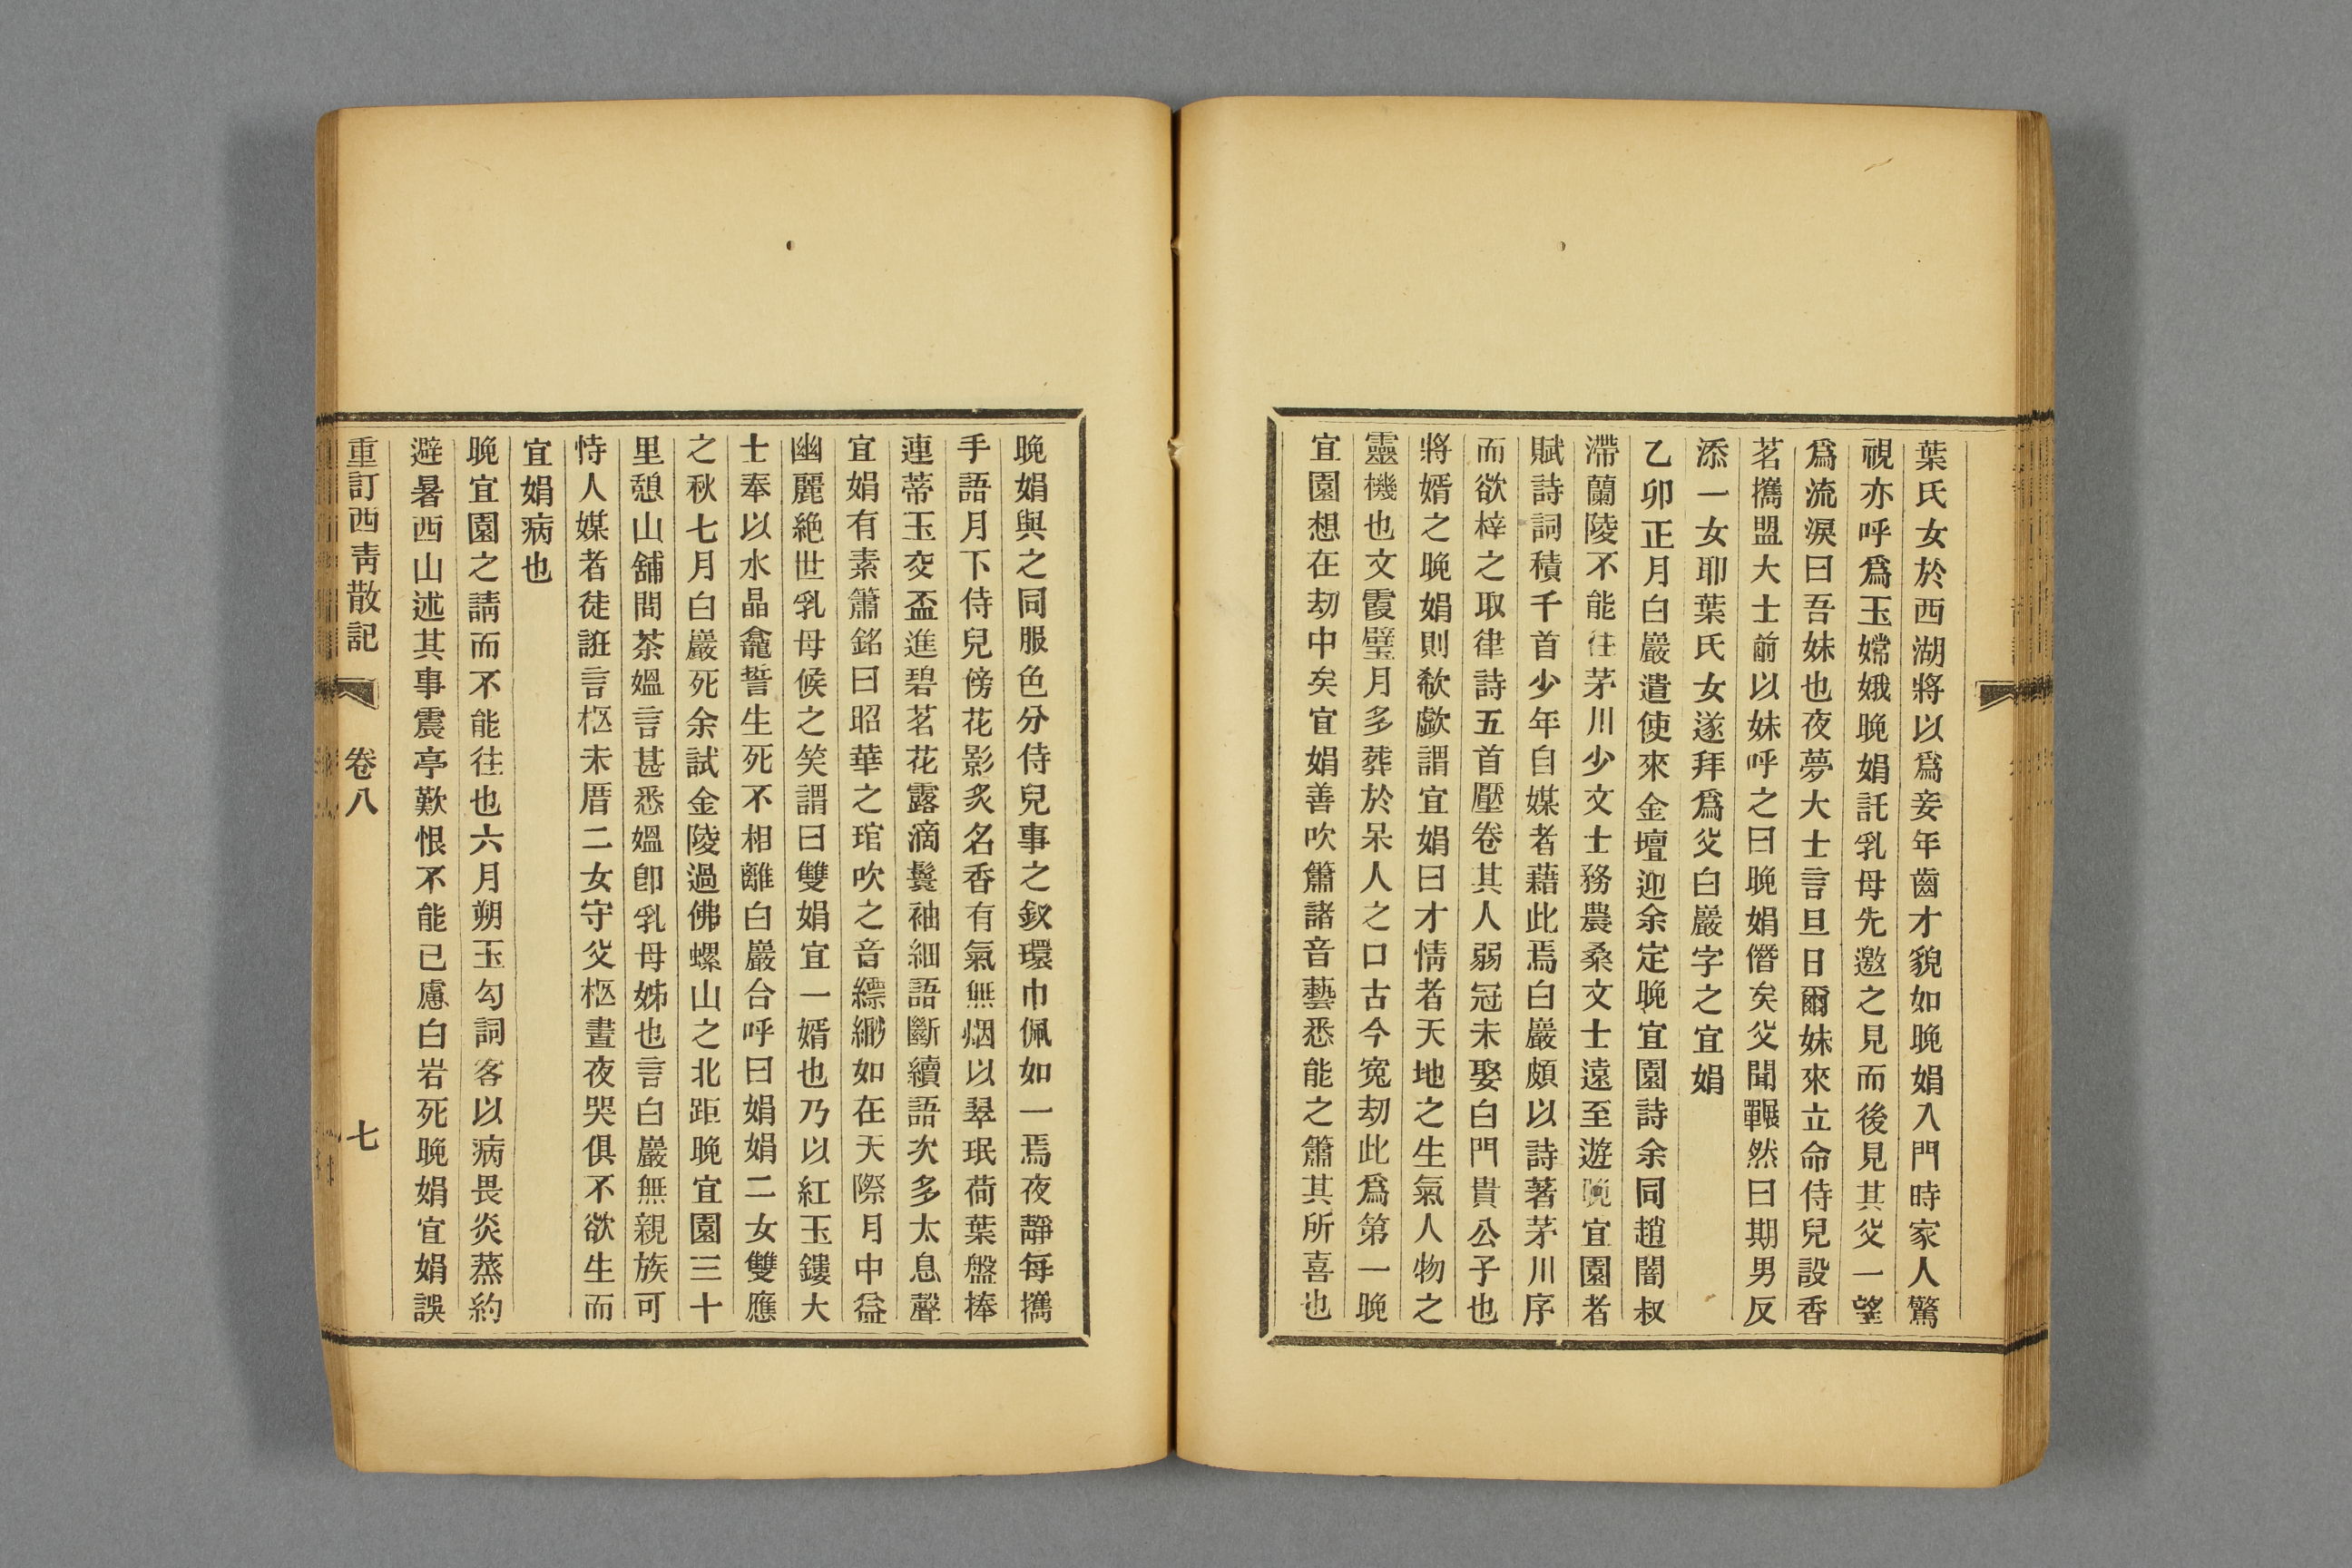 葉氏女於西湖將以爲妾年齒才貌如晚娟入門時家人驚
視亦呼爲玉嫦娥晚娟託乳母先邀之見而後見其父一望
爲流淚曰吾妹也夜夢大士言旦日爾妹來立命侍兒設香
茗攜盟大士前以妹呼之曰晚娟僭矣父聞囅然曰期男反
添一女耶葉氏女遂拜爲父白巖字之宜娟
乙卯正月白巖遣使來金壇迎余定晚宜園詩余同趙闇叔
滯蘭陵不能往茅川少文士務農桑文士遠至遊晚宜園者
賦詩詞積千首少年自媒者藉此焉白巖頗以詩著茅川序
而欲梓之取律詩五首壓卷其人弱冠未娶白門貴公子也
將婿之晚娟則欷歔謂宜娟曰才情者天地之生氣人物之
靈機也文霞璧月多葬於呆人之口古今冤劫此爲第一晚
宜園想在劫中矣宜娟善吹簫諸音藝悉能之簫其所喜也
晚娟與之同服色分侍兒事之釵環巾佩如一焉夜靜每攜
手語月下侍兒傍花影炙名香有氣無烟以翠珉荷葉盤捧
連蒂玉交盃進碧茗花露滴鬟袖細語斷續語次多太息聲
宜娟有素簫銘曰昭華之琯吹之音縹緲如在天際月中益
幽麗絶世乳母候之笑謂曰雙娟宜一婿也乃以紅玉鏤大
士奉以水晶龕誓生死不相離白巖合呼曰娟娟二女雙應
之秋七月白巖死余試金陵過佛螺山之北距晚宜園三十
里憩山舖問茶媼言甚悉媼卽乳母姊也言白巖無親族可
恃人媒者徒誑言柩未厝二女守父柩晝夜哭俱不欲生而
宜娟病也
晚宜園之請而不能往也六月朔玉勾詞客以病畏炎蒸約
避暑西山述其事震亭歎恨不能已慮白岩死晚娟宜娟誤
重訂西青散記 卷八 七